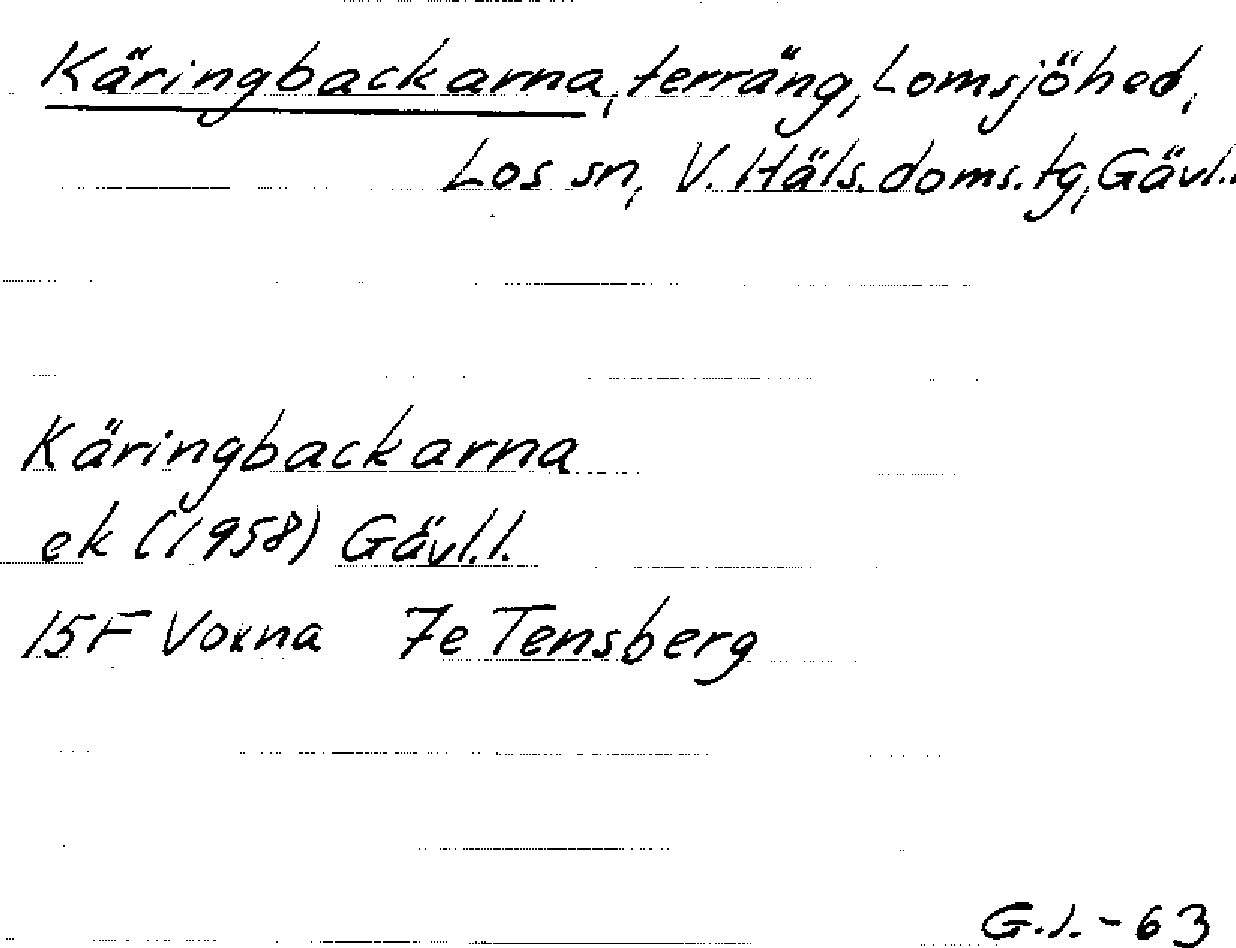 Käringbackarna, terräng, Lomsjöhed,
Los sn, V. Häls. doms. tg, Gävl.
Käringbackarna
ek (1958) Gävl.l.
15F Voxna 7e Tensberg
G.l.-63